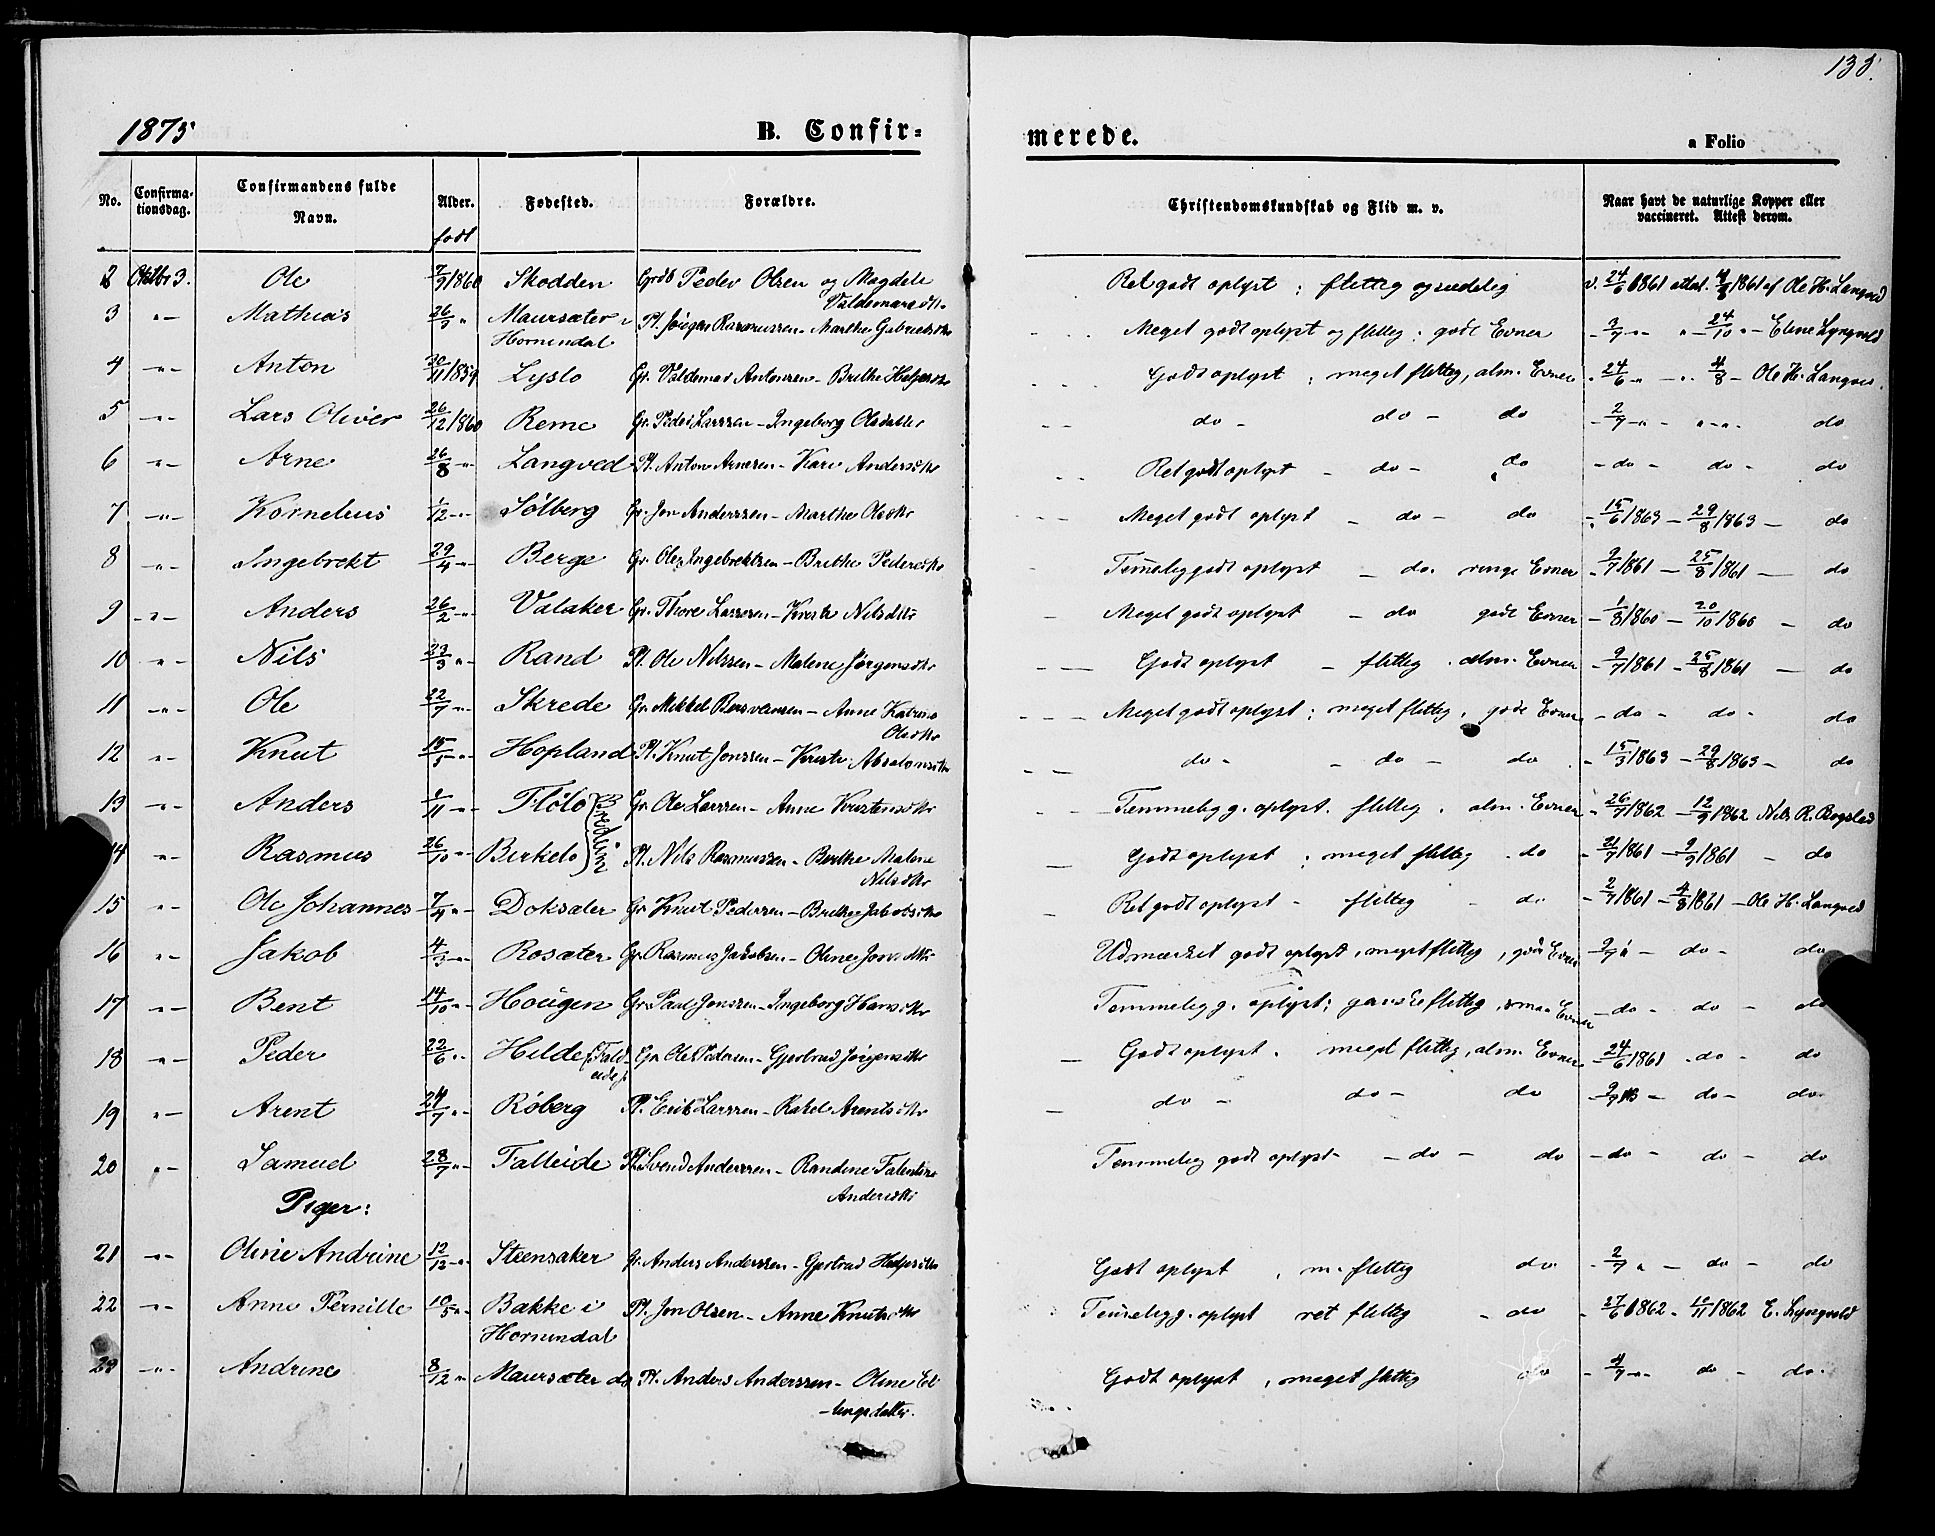 138.
1875
B. Confir=
merede.
a Folio
No.
Confirma-
tionsdag.
Confirmandens fulde
Navn.
Alder.
født
Fødested.
Forældre.
Christendomskundskab og Flid m. v.
Naar havt de naturlige Kopper eller
vaccineret. Attest derom.
2 Oktbr 3. Ole 7/9 1860 Skodden Grdb Peder Olsen og Magdele Ret godt oplyst ; flittig og sædelig v. 24/6 1861 attest. 4/8 1861 af Ole H. Langved
Valdemarsdtr
3 -"- Mathias 26/9 " Maursæter i Pl. Jørgen Rasmussen - Marthe Gabrielsdtr Meget godt oplyst og flittig ; gode Evner - 2/7 -"- " - 24/10 " - Eline Lyngvold
Hornindal
4 -"- Anton 30/11 1859 Lyslo Gr. Valdemar Antonsen - Brithe Helgesdtr Godt oplyst ; meget flittig, alm. Evner " 24/6 " - " 4/8 - Ole H. Langved.
5 -"- Lars Oliver 26/12 1860 Reme Gr. Peder Larssen - Ingeborg Olsdatter do - do - do 2/7 -"- -"-"- do
6 -"- Arne 26/8 -"- Langved Pl. Anton Arnesen - Kari Andersdtr Ret godt oplyst - do - do - do - do - do
7 -"- Kornelius 1/12 -"- Sølberg Gr. Jon Anderssen - Marthe Olsdtr Meget godt oplyst - do - do - 15/6 1863 - 29/8 1863 - do
8 -"- Ingebrekt 29/4 -"- Berge Gr. Ole Ingebrektsen - Brithe Pedersdtr Temelig godt oplyst - do. ringe Evner - 2/7 1861 - 25/8 1861 - do
9 -"- Anders 26/2 -"- Valaker Gr. Thore Larssen - Kirsti Nilsdtr Meget godt oplyst - do gode Evner - 1/8 1860 - 20/10 1860 - do
10 -"- Nils 23/3 "- Rand Pl. Ole Nilssen - Malene Jørgensdtr Godt oplyst - flittig . alm. Evner - 2/7 1861 - 25/8 1861 - do
11 -"- Ole 22/7 -"- Skrede Gr. Mikkel Rasmussen - Anne Katrine Meget godt oplyst ; meget flittig, gode Evner - do - do - do
Olsdtr
12 -"- Knut 15/5 -"- Hopland Pl. Knut Jonssen - Kirsti Absalonsdtr do - - do - do - 15/3 1863 - 29/8 1863 - do
13 -"- Anders 1/11 -"- Flølo Gr. Ole Larssen - Anne Kirstensdtr Temmelig g. oplyst. flittig . alm. Evner - 26/7 1862 - 12/9 1862 Nils R. Bogstad
Bredvig
14 -"- Rasmus 26/10 "- Birkelo Pl. Nils Rasmussen - Berthe Malene Godt oplyst ; meget flittig . do - 21/7 1861 - 9/9 1861 - do
Nilsdtr
15 -"- Ole Johannes 7/4 "- Doksæter Gr. Knut Pederssen - Brithe Jakobsdtr Ret godt oplyst - flittig - do - 2/7 1861 - 4/8 1861 - Ole H. Langved
16 -"- Jakob 4/3 -"- Rosæter Gr. Rasmus Jakobsen - Oline Jonsdtr Udmærket godt oplyst, meget flittig, gode Evner 2/7 " - do - do
17 -"- Bent 14/10 "- Hougen Gr. Paul Jonssen - Ingeborg Hansdtr Temmelig g. oplyst ; ganske flittig, smaa Evner - do - do - do
18 -"- Peder 22/6 "- Helde (Tal- Gr. Ole Pedersen - Gjertrud Jørgensdtr Godt oplyst . meget flittig, alm. Evner 24/6 1861 . do - do
eide)
19 "- Arent 24/7 "- Røberg Pl. Erik Larssen - Rakel Arentsdtr do - do - do - 2/7 - do - do
20 "- Samuel 28/7 "- Talleide Pl. Svend Anderssen - Randine Talentine Temmelig godt oplyst - do - do - do - do - do
Andersdtr
Piger:
21 -"- Oline Andrine 12/12 -"- Steensaker Gr. Anders Anderssen - Gjertrud Helgesdtr Godt oplyst , m. flittig do - 2/7 " - do - do
22 -"- Anne Pernille 10/5 "- Bakke i Pl. Jon Olsen - Anne Knutsdtr Temelig g. oplyst ret flittig - do - 27/6 1862 - 10/11 1862 E. Lyngvold
Hornindal
23 -"- Andrine 8/12 " Maursæter do Pl. Anders Anderssen - Oline El- Godt oplyst , meget flittig do - 4/7 -"- do - do.
-lingsdatter.